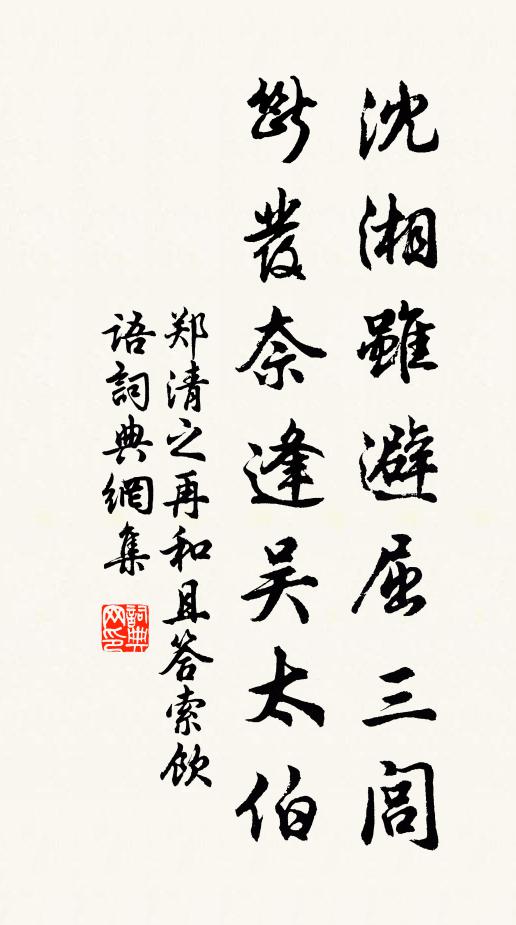 沈湘雖避屈三閭
斷發奈逢吴太伯
郑清之再和且答索飲
語詞典網集
詞典
网印